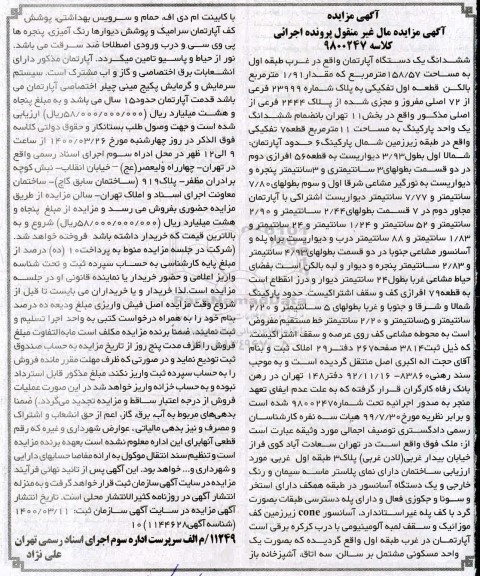 آگهی مزایده
آگهی مزایده مال غیر منقول پرونده اجرائی
کلاسه ۹۸۰۰۲۴۷
ششدانگ یک دستگاه آپارتمان واقع در غرب طبقه اول
به مساحت ۱۵۸/۵۷مترمربع که مقدار۱/۹۱ مترمربع
بالکن قطعه اول تفکیکی به پلاک شماره ۲۳۹۹۹ فرعی
از ۷۲ اصلی مفروز و مجزی شده از پلاک ۲۴۴۴ فرعی از
اصلی مذکور واقع در بخش۱۱ تهران بانضمام ششدانگ
یک واحد پارکینگ به مساحت ۱۱مترمربع قطعه۷ تفکیکی
واقع در طبقه زیرزمین شمال پارکینگ۶ حدود آپارتمان:
شمالا اول بطول۳/۹۳ دیواریست به قطعه۵۶ افرازی دوم
در دو قسمت بطولهای۳ سانتیمتری و ۳سانتیمتر پنجره و
دیواریست به نورگیر مشاعی شرقا اول و سوم بطولهای۷/۸۰
سانتیمتر و ۷/۷۷ سانتیمتر دیواریست اشتراکی با آپارتمان
مجاور دوم در ۷ قسمت بطولهای۲/۴۴ سانتیمتر و ۲/۹۰
سانتیمتر و ۵۲ سانتیمتر و ۱/۲۴ سانتیمتر و ۲۴ سانتیمتر و
۱/۸۳ سانتیمتر و ۸۸ سانتیمتر درب و دیواریست براه پله و
آسانسور مشاعی جنوبا در دو قسمت بطولهای۴/۹۳ سانتیمتر
و ۲/۸۳ سانتیمتر پنجره و دیوار و لبه بالکن است بفضای
حیاط مشاعی غربا بطول۲۴ سانتیمتر دیوار و درز انقطاع است
به قطعه۷۹ افرازی کف و سقف اشتراکیست. حدود پارکینگ
شمالا و شرقا و جنوبا و غربا بطولهای ۵ سانتیمتر و ۲/۲۰
سانتیمتر و ۵سانتیمتر و ۲/۲۰ سانتیمتر خط مستقیم مفروض
است به محوطه مشاعی کف روی عرصه و سقف اشتراکیست.
که ذیل ثبت۳۸۱۴ صفحه۲۶۷ دفتر۲۹ املاک ثبت و بنام
آقای حجت اله اکبری اصل منتقل گردیده است و به موجب
سند رهنی۸۳۸۶۰-۹۲/۱۱/۱۶ دفتر۱۴۸ تهران در رهن
بانک رفاه کارگران قرار گرفته که به علت عدم ایفای تعهد
منجر به صدور اجرائیه تحت شماره۹۸۰۰۲۴۷ شده است
و برابر نظریه مورخ۹۹/۷/۳۰ هیات سه نفره کارشناسان
رسمی دادگستری توصیف اجمالی مورد وثیقه عبارت است
از: ملک فوق واقع است در تهران سعادت آباد کوی فراز
خیابان بیدار غربی(لادن غربی) پلاک۳ طبقه اول غربی، مورد
ارزیابی ساختمان دارای نمای پلاستر ماسه سیمان و رنگ
خارجی و یک دستگاه آسانسور در طبقه همکف دارای استخر
و سونا و جکوزی فعال و دارای پله دسترسی طبقات بصورت
گرد با کف پله غیراستاندارد، آسانسور cone زیرزمین کف
موزائیک و سقف لمبه آلومینیومی با درب کرکره برقی است
آپارتمان در غرب طبقه اول واقع گردیده که بصورت یک
واحد مسکونی مشتمل بر سالن، سه اتاق، آشپزخانه باز
با کابینت ام دی اف، حمام و سرویس بهداشتی، پوشش
کف آپارتمان سرامیک و پوشش دیوارها رنگ آمیزی، پنجره ها
پی وی سی و درب ورودی اصطلاحا ضد سرقت می باشد.
نور از حیاط و پاسیو تامین میگردد. آپارتمان مذکور دارای
انشعابات برق اختصاصی و گاز و آب مشترک است. سیستم
سرمایش و گرمایش پکیج مینی چیلر اختصاصی آپارتمان می
باشد قدمت آپارتمان حدود۱۵ سال می باشد و به مبلغ پنجاه
و هشت میلیارد ریال (۵۸/۰۰۰/۰۰۰/۰۰۰ریال) ارزیابی
شده است و جهت وصول طلب بستانکار و حقوق دولتی کلاسه
فوق الذکر در روز چهارشنبه مورخ ۱۴۰۰/۰۳/۲۶ از ساعت
۹ الی۱۲ ظهر در محل اداراه سوم اجرای اسناد رسمی واقع
در تهران- چهارراه ولیعصر(عج) - خیابان انقلاب- نبش کوچه
برادران مظفر- پلاک۹۱۹ (ساختمان سابق گاج)- ساختمان
معاونت اجرای اسناد و املاک تهران- سالن مزایده از طریق
مزایده حضوری بفروش می رسد و مزایده از مبلغ پنجاه و
هشت میلیارد ریال (۵۸/۰۰۰/۰۰۰/۰۰۰ریال) شروع و به
بالاترین قیمت که خریدار داشته باشد فروخته خواهد شد.
(شرکت در جلسه مزایده منوط به پرداخت۱۰ (ده) درصد از
مبلغ پایه کارشناسی به حساب سپرده ثبت و تحت شناسه
واریز اعلامی و حضور خریدار یا نماینده قانونی او در جلسه
مزایده است.لذا خریدار و یا خریداران می بایست تا قبل از
شروع وقت مزایده اصل فیش واریزی مبلغ ودیعه ده درصد
بنام خود را به همراه درخواست کتبی به واحد اجرا تسلیم و
ثبت نمایند. ضمنا برنده مزایده مکلف است مابه‌التفاوت مبلغ
فروش را ظرف مدت پنج روز از تاریخ مزایده به حساب صندوق
ثبت تودیع نماید و در صورتی که ظرف مهلت مقرر مانده فروش
را به حساب سپرده ثبت واریز نکند، مبلغ مذکور قابل استرداد
نبوده و به حساب خزانه واریز خواهد شد در این صورت عملیات
فروش از درجه اعتبار ساقط و مزایده تجدید می‌گردد.) ضمنا
بدهی‌های مربوط به آب، برق، گاز، اعم از حق انشعاب و اشتراک
و مصرف و نیز بدهی مالیاتی، عوارض شهرداری و غیره که رقم
قطعی آنهابرای این اداره معلوم نشده است بعهده برنده مزایده
است و تنظیم سند انتقال موکول به ارائه مفاصا حسابهای دارایی
و شهرداری و... خواهد بود. این آگهی پس از تائید نهائی فرآیند
مزایده در سایت آگهی سازمان ثبت قرار خواهد گرفت و به منزله
انتشار آگهی در روزنامه کثیر الانتشار محلی است. تاریخ انتشار
آگهی مزایده در سایت آگهی سازمان ثبت: ۱۴۰۰/۰۳/۱۱
(شناسه آگهی۱۱۴۴۶۲۸)۱۰
۱۱۲۴۹/م الف سرپرست اداره سوم اجرای اسناد رسمی تهران
علی نژاد